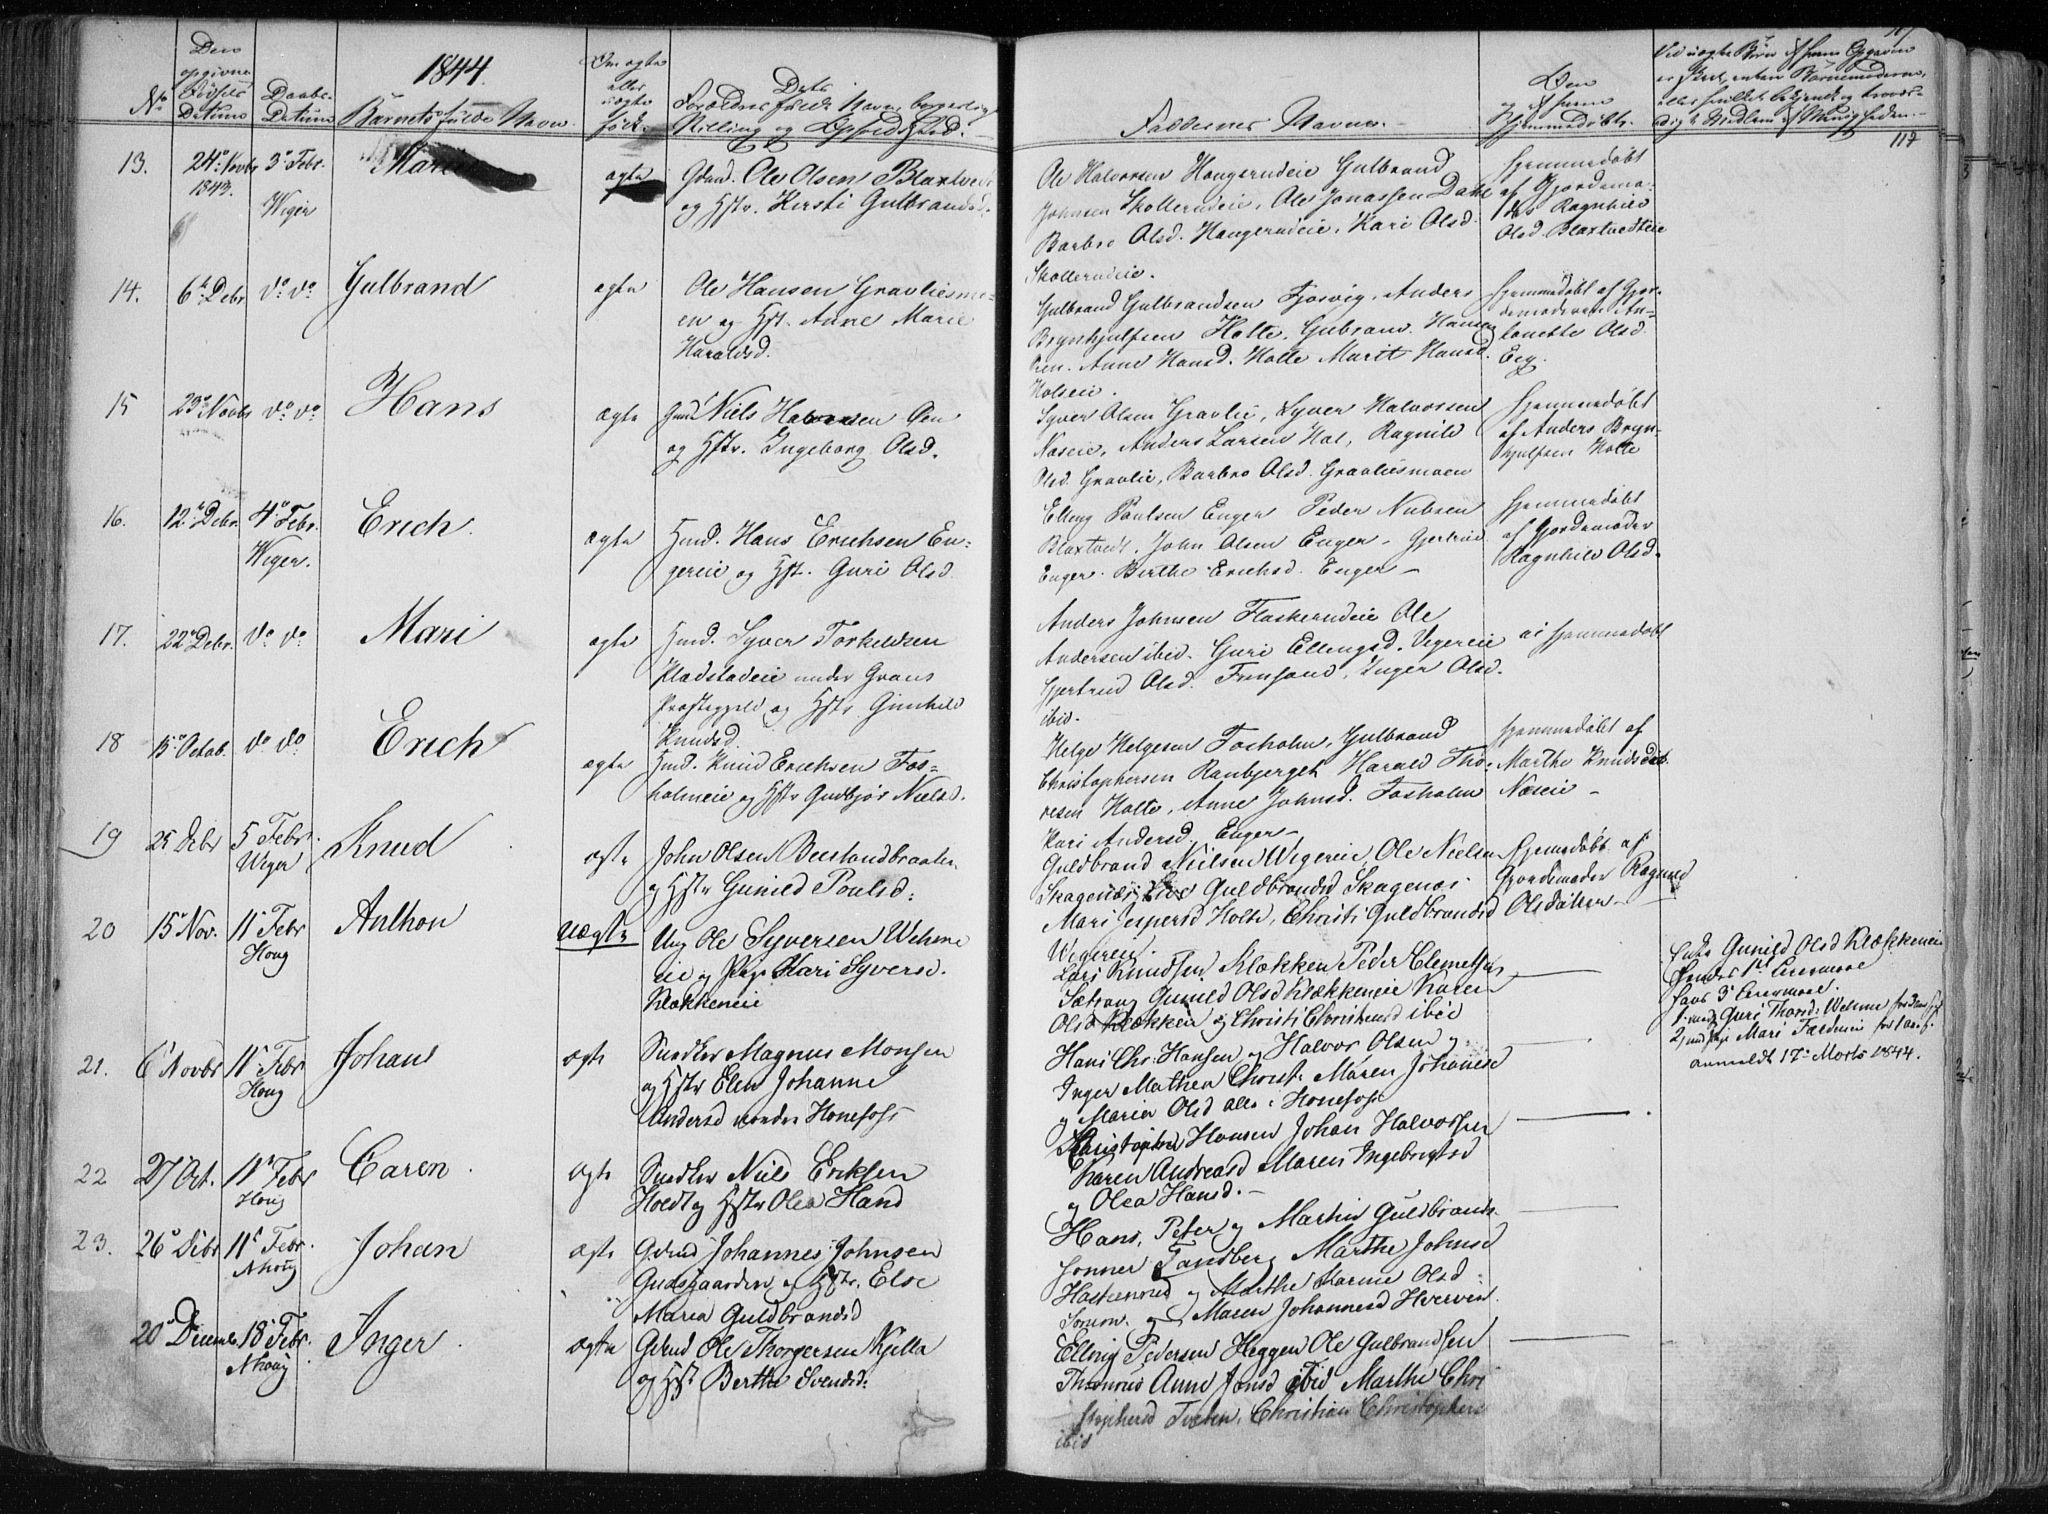 1844.
No
Deres opgivne Fødsels Datum
Daabs-Datum
Barnets fulde Navn.
Om ægte eller uægte født.
Forældres fulde Navn, borgerlige
Stilling og Opholdssted.
Faddernes Navne.
Hjemmedøbte.
117
13.
24de Novbr 1843.
3de Febr. Weger
Mari
ægte
Gdmd. Ole Olsen Blaxtvedt
og Hstr. Kirsti Gulbrandsd.
Ole Halvorsen Haugerudeie Gulbrand
Johnsen Skollerudeie, Ole Jonassen Dahl
Barbro Olsd. Haugerudeie, Kari Olsd.
Skollerudeie.
Hjemmedøbt
af Gjordemo-
der Ragnhild
Olsd. Blaxtvedteie
14.
6te Debr.
do do
Gulbrand
ægte
Ole Hansen Gravliesmo-
en og Hst. Anne Marie
Haraldsd.
Gulbrand Gulbrandsen Fjosvig, Anders
Brynhjulfsen Holte, Gulbrand Hansen
Øen. Anne Hansd. Holte Marit Hansd.
Holseie.
Hjemmedøbt af Gjor-
demoderen An-
tonette Olsd.
Eeg.
15
23de Novbr
do do
Hans
ægte
Gmd. Niels Halvorsen Øen
og Hstr. Ingeborg Olsd.
Syver Olsen Gravlie, Syver Halvorsen
Næseie, Anders Larsen Hol, Ragnild
Olsd. Gravlie, Barbro Olsd. Gravliesmoen
Hjemmedøbt
af Anders Bryn-
hjulfsen Holte
16.
12te Debr.
4de Febr. Weger.
Erich
ægte
Hmd. Hans Erichsen En-
gereie og Hst. Guri Olsd.
Elling Paulsen Enger Peder Nubsen
Blaxtvedt, John Olsen Enger, Gjertrud
Enger. Birthe Erichsd. Enger
Hjemmedøbt
af Gjordemoder
Ragnhild Olsd.
17.
22de Debr.
do do
Mari
ægte
Hmd. Syver Torkildsen
Pladstadeie under Grans
Præstegjeld og Hstr Gunhild
Knudsd.
Anders Johnsen Flaskerudeie Ole
Andersen ibid. Guri Ellingsd. Vegereie
Gjertrud Olsd. Finsand, Inger Olsd.
ibid.
ei Hjemmedøbt
18
15de Octob.
do do
Erich
ægte
Hmd. Knud Erichsen Fos-
holmeie og Hstr Gudbjør Nielsd.
Helge Helgesen Fosholm, Gulbrand
Christophersen Ranbjerget Harald Tho-
resen Holte, Anne Johnsd. Fosholm
Kari Andersd. Enger
Hjemmedøbt af
Marthe Knudsdat.
Næseie
19
25 Debr
5 Febr Weger
Knud
ægte
John Olsen Beestandbraaten
og Hstr Gunild Poulsd:
Guldbrand Nielsen Wegereie, Ole Nielsen
Skagenæs, Guldbrandsd Skagenæs
Mari Jespersd Holte, Christi Guldbrandsd
Wegereie.
Hjemdøbt af
Gjordemoder Ragnild
Olsdatter
20
15de Nov.
11te Febr Houg
Anthon
uægte
Ung. Ole Syversen Wehme
eie og Pige Kari Syversd.
Klækkeneie
Lars Knudsen Klækken Peder Clemetsen
Sætrang Gunild Olsd Klækkeneie Karen
Olsd Klækken og Christi Christensd ibid
Enke Gunild Olsd Klækkeneie
Hendes 1st Leiermaal
hans 3de Leiermaal.
1. med Guri Thorsd. Wehme
2, med Pige Mari
anmeldt 17de Marts 1844.
21.
6te Novbr
11te Febr Houg
Johan
ægte
Snedker Magnus Monsen
og Hstr Elen Johanne
Andersd nordre Hønefoss
Hans Chr: Hansen og Halvor Olsen og
Inger Mathea Christ. Maren Johansd
og Marie Olsd alle i Hønefoss
22
27 Oct.
11te Febr Houg
Caren
ægte
Snedker Niels Eriksen
Holdt og Hstr Olea Hansd
Christopher Hansen Johan Halvorsen
Karen Andreasd Maren Ingebrigtsd
og Olea Hansd.
23.
26de Debr
11te Febr. Nhoug
Johan
ægte
Gdmd Johannes Johnsen
Gudsgaarden og Hstr. Else
Maria Guldbrandsd
Hans, Peter og Martin Guldbrands-
sønner Tandberg Marthe Johnsd
og Marthe Marine Olsd
og Maren Johannesd Hverven.
20de December
18de Febr. Nhoug
Inger
ægte
Gdmd Ole Thorgersen Kjelle
og Hst Berthe Svendsd:
Elling Pedersen Heggen Ole Gulbrandsen
Anne Jonsd ibid Marthe Chri
stophersd Tveten, Christian Christophers
ibid